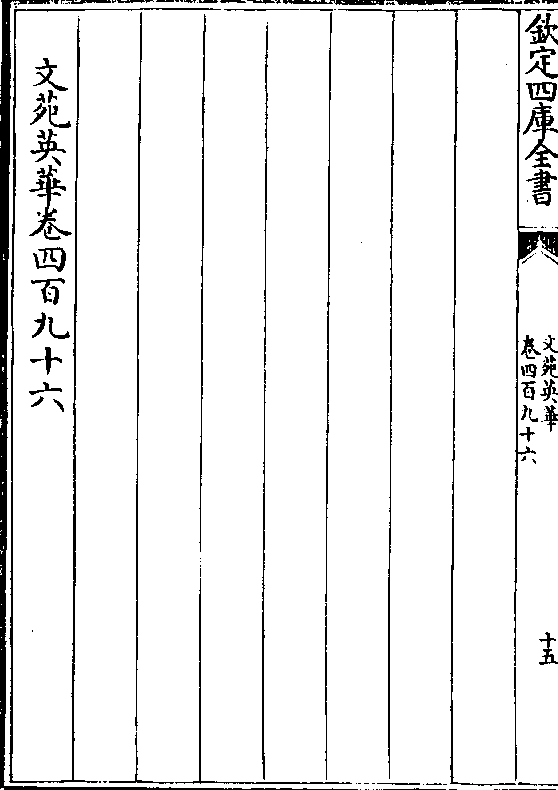 欽定四庫全書
文苑英華
卷四百九十六
十五
文苑英華卷四百九十六